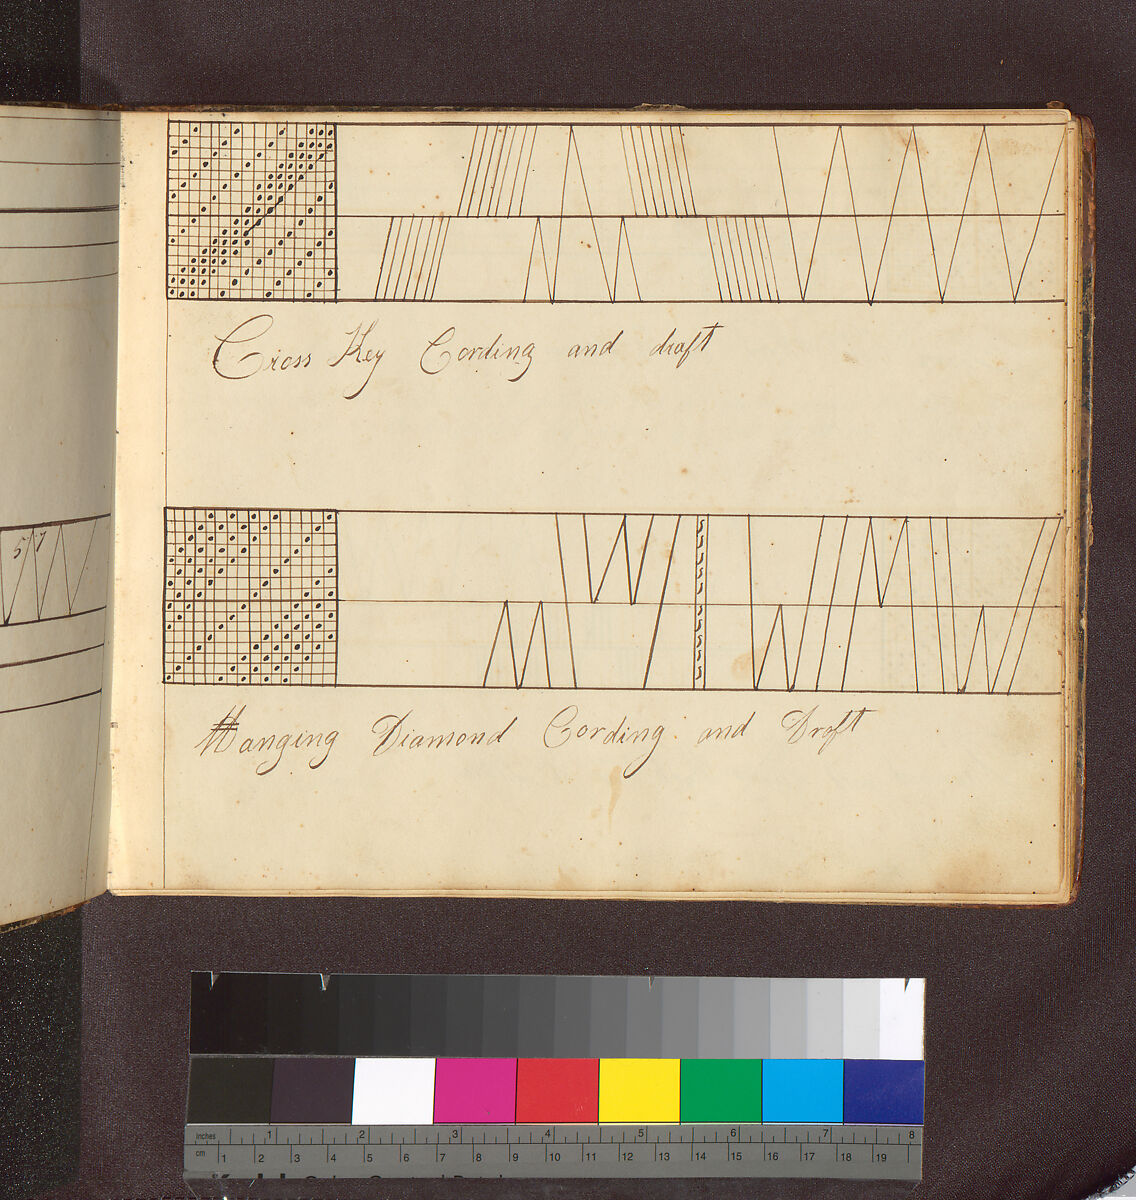 Cross Key Cording and draft
57
Hanging Diamond Cording and Draft
inches 1 2 3 4 5 6 7 8
cm 1 2 3 4 5 6 7 8 9 10 11 12 13 14 15 16 17 18 19